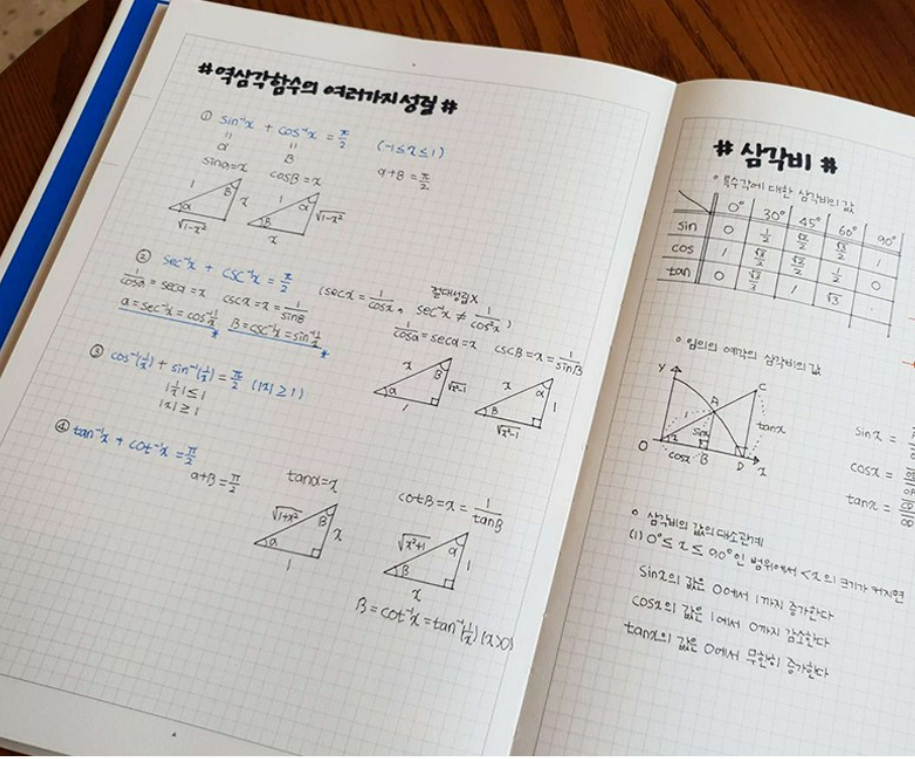 #역삼각함수의 여러가지성질#
① sin⁻¹x + cos⁻¹x = π/2 (-1≤x≤1)
" "
α β α+β=π/2
sinα=x cosβ=x
1 β x α √1-x²
1 α √1-x² β x
② sec⁻¹x + csc⁻¹x = π/2
절대성립X
(secx = 1/cosx, sec⁻¹x ≠ 1/cos⁻¹x)
1/cosα = secα = x cscx = x = 1/sinβ
α = sec⁻¹x = cos⁻¹1/x β = csc⁻¹x = sin⁻¹1/x
1/cosα = secα = x cscβ = x = 1/sinβ
x β √x²-1 α 1
x α 1 β √x²-1
③ cos⁻¹(1/x) + sin⁻¹(1/x) = π/2 (|x|≥1)
|1/x| ≤ 1
|x| ≥ 1
④ tan⁻¹x + cot⁻¹x = π/2
α+β = π/2
tanα=x
cotβ = x = 1/tanβ
√1+x² β x α 1
√x²+1 α 1 β x
β = cot⁻¹x = tan⁻¹(1/x) (x>0)
# 삼각비 #
• 특수각에 대한 삼각비의 값
0° 30° 45° 60° 90°
sin 0 1/2 √2/2 √3/2 1
cos 1 √3/2 √2/2 1/2 0
tan 0 √3/3 1 √3
• 임의의 예각의 삼각비의 값
y A C
1 sinx tanx
O x cosx B D x
sinx =
cosx =
tanx =
• 삼각비의 값의 대소관계
(1) 0° ≤ x ≤ 90°인 범위에서 <x의 크기가 커지면
sinx의 값은 0에서 1까지 증가한다
cosx의 값은 1에서 0까지 감소한다
tanx의 값은 0에서 무한히 증가한다